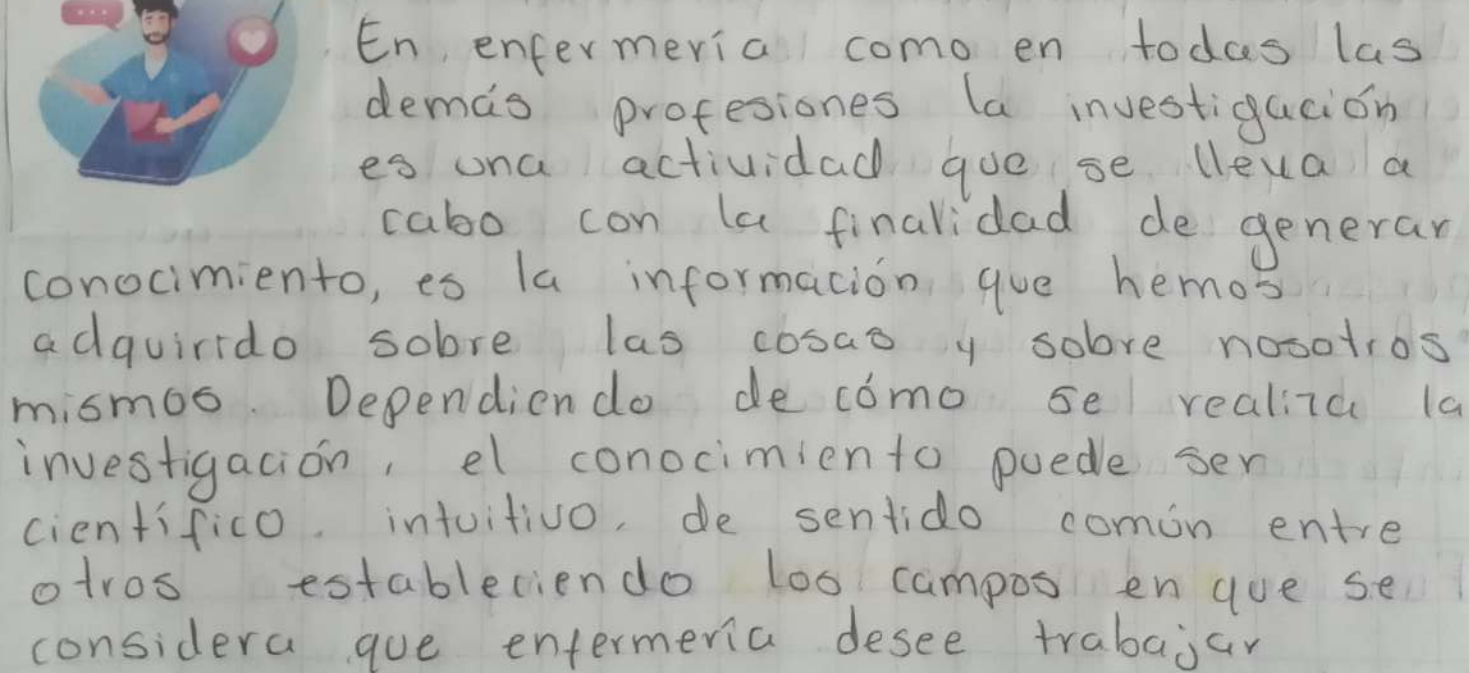 En enfermería como en todas las
demás profesiones la investigación
es una actividad que se lleva a
cabo con la finalidad de generar
conocimiento, es la información que hemos
adquirido sobre las cosas y sobre nosotros
mismos. Dependiendo de cómo se realiza la
investigación, el conocimiento puede ser
científico. intuitivo. de sentido común entre
otros estableciendo los campos en que se
considera que enfermería desee trabajar